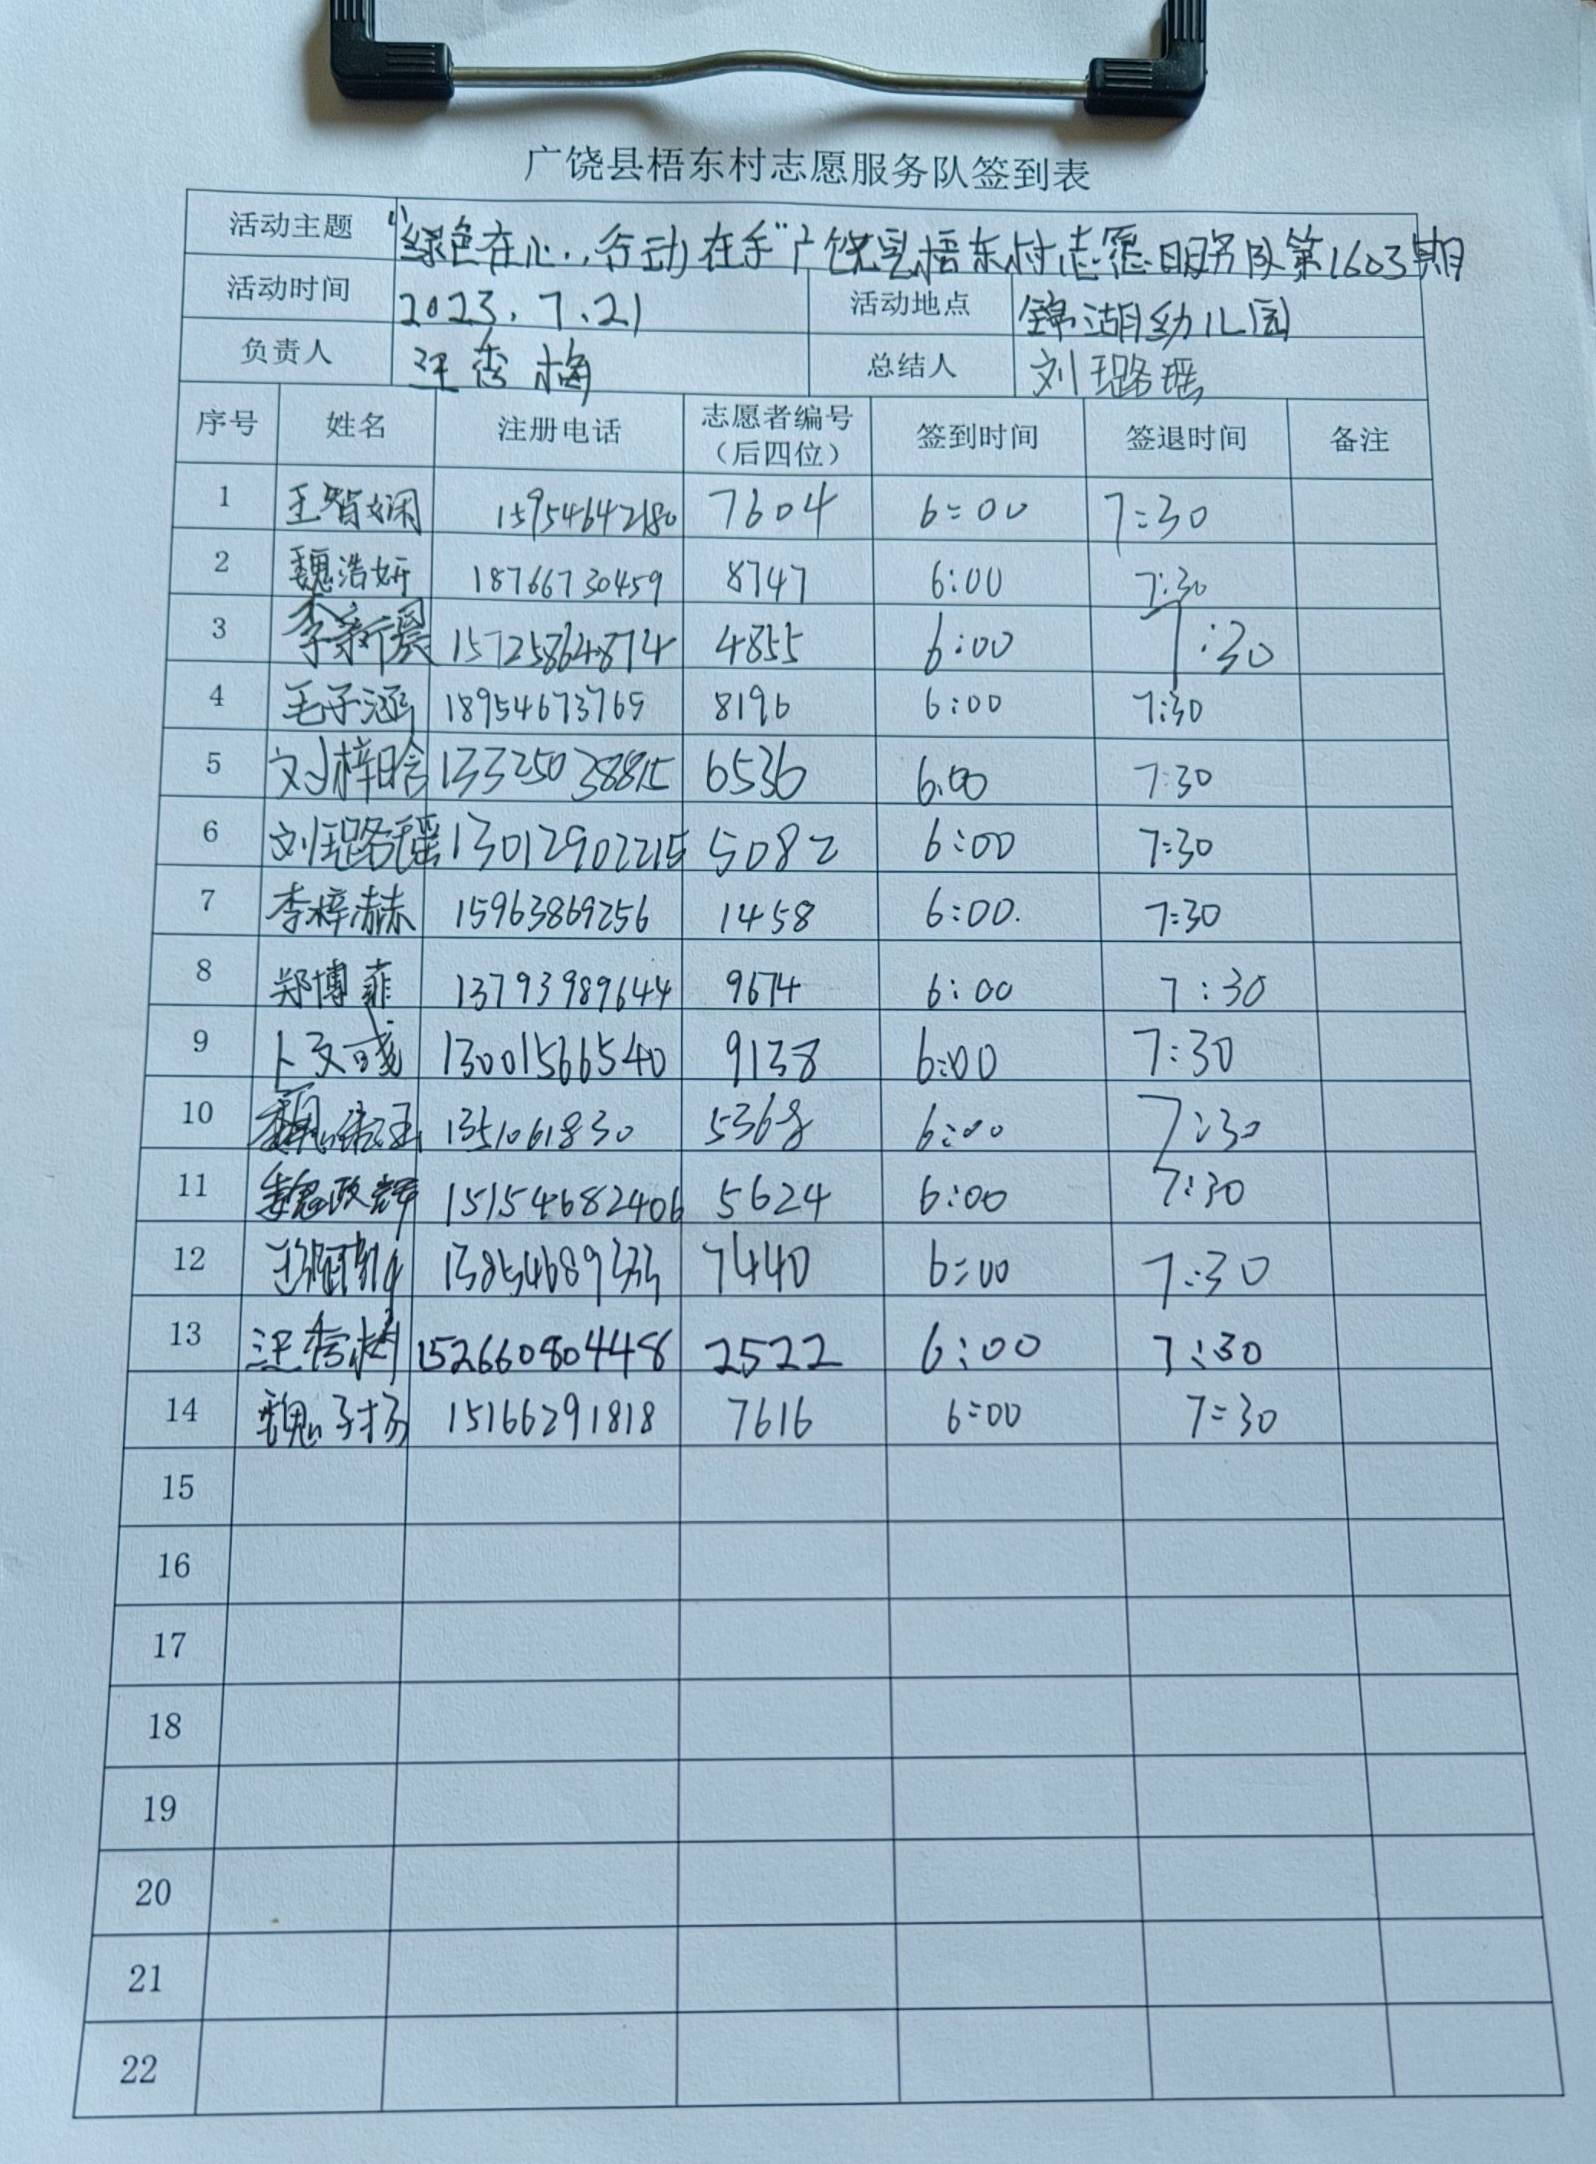 广饶县梧东村志愿服务队签到表
活动主题 “绿色在心,行动在手”广饶县梧东村志愿服务队第1603期
活动时间 2023.7.21 活动地点 锦湖幼儿园
负责人 汪秀梅 总结人 刘璐瑶
序号 姓名 注册电话 志愿者编号(后四位) 签到时间 签退时间 备注
1 王智娴 15954642180 7604 6:00 7:30
2 魏浩妍 18766730459 8747 6:00 7:30
3 李新晨 15725864874 4855 6:00 7:30
4 毛子涵 18954673765 8196 6:00 7:30
5 刘梓晗 13325038815 6536 6:00 7:30
6 刘璐瑶 13012902215 5082 6:00 7:30
7 李梓赫 15963869256 1458 6:00 7:30
8 郑博菲 13793989644 9674 6:00 7:30
9 卜文彧 13001566540 9138 6:00 7:30
10 1351061830 5368 6:00 7:30
11 魏政辉 15154682406 5624 6:00 7:30
12 7440 6:00 7:30
13 汪秀梅 15266080448 2522 6:00 7:30
14 魏子扬 15166291818 7616 6:00 7:30
15
16
17
18
19
20
21
22